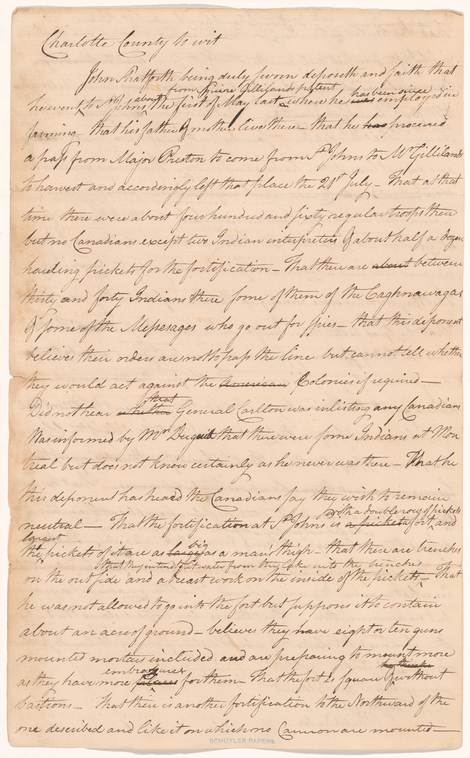 Charlotte County to wit
John Shatforth being duly sworn deposeth and saith that
from Squire Gillilands patent
he went to St Johns about the first of May last where he was has been since employed in
farming – that his father & mother live there – that he had procured
a pass from Major Preston to come from St Johns to Mr Gillilands
to harvest and accordingly left that place the 21st July – That at that
time there were about four hundred and fifty regular troops there
but no Canadians except two Indian interpreters & about half a dozen
hauling pickets for the fortification – That there are about between
thirty and forty Indians there some of them of the Caghnawagas
& some of the Messesages who go out for spies – that this deponent
believes their orders are not to pass the line but cannot tell whether
they would act against the American Colonies if required –
Did not hear that General Carlton was inlisting any Canadians
Was informed by Mrs that there were some Indians at Mon
treal but does not know certainly as he never was there – That he
this deponent has heard the Canadians say they wish to remain
neutral – That the fortification at St Johns is a picketed fort and
with a double row of pickets
the longest pickets of it are as large big as a mans thigh – that there are trenches
that they intend to let water from the lake into the trenches
on the out side and a breast work on the inside of the pickets – That
he was not allowed to go into the fort but supposes it to contain
about an acre of ground – believes they have eight or ten guns
mounted mortars included and are preparing to mount more
as they have more embrazures places for them – That the fort is square & without
bastions – That there is another fortification to the Northward of the
one described and like it on which no Cannon are mounted –
SCHUYLER PAPERS.